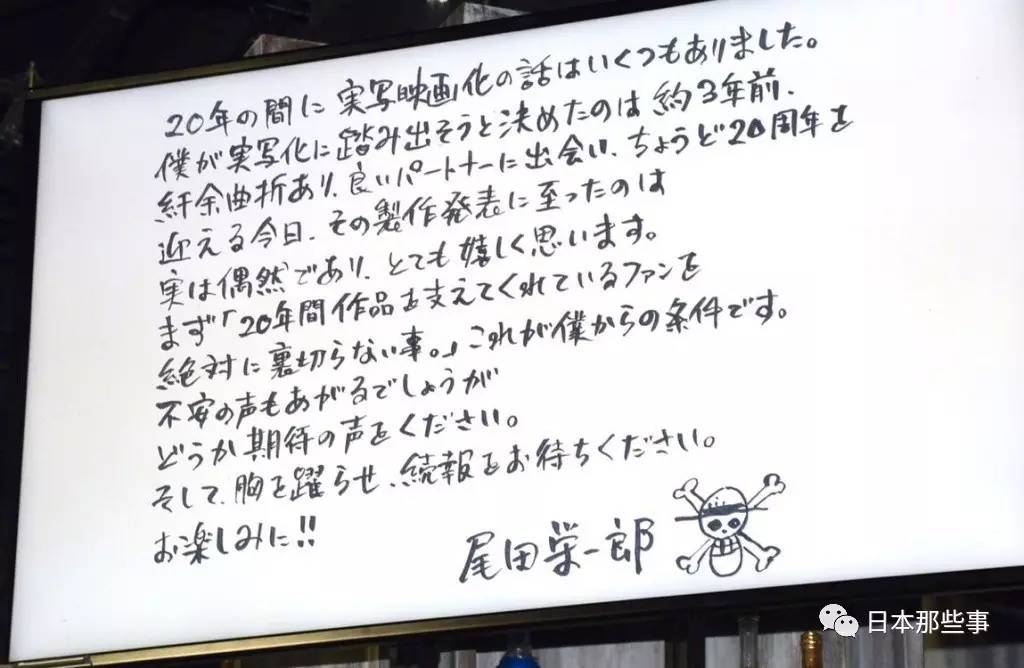 20年の間に実写映画化の話はいくつもありました。
僕が実写化に踏み出そうと決めたのは約3年前.
紆余曲折あり、良いパートナーに出会い、ちょうど20周年を
迎える今日、その製作発表に至ったのは
実は偶然であり、とても嬉しく思います。
まず「20年間作品を支えてくれているファンを
絶対に裏切らない事。」これが僕からの条件です。
不安の声もあがるでしょうが
どうか期待の声をください。
そして、胸を躍らせ、続報をお待ちください。
お楽しみに!!
尾田栄一郎
日本那些事